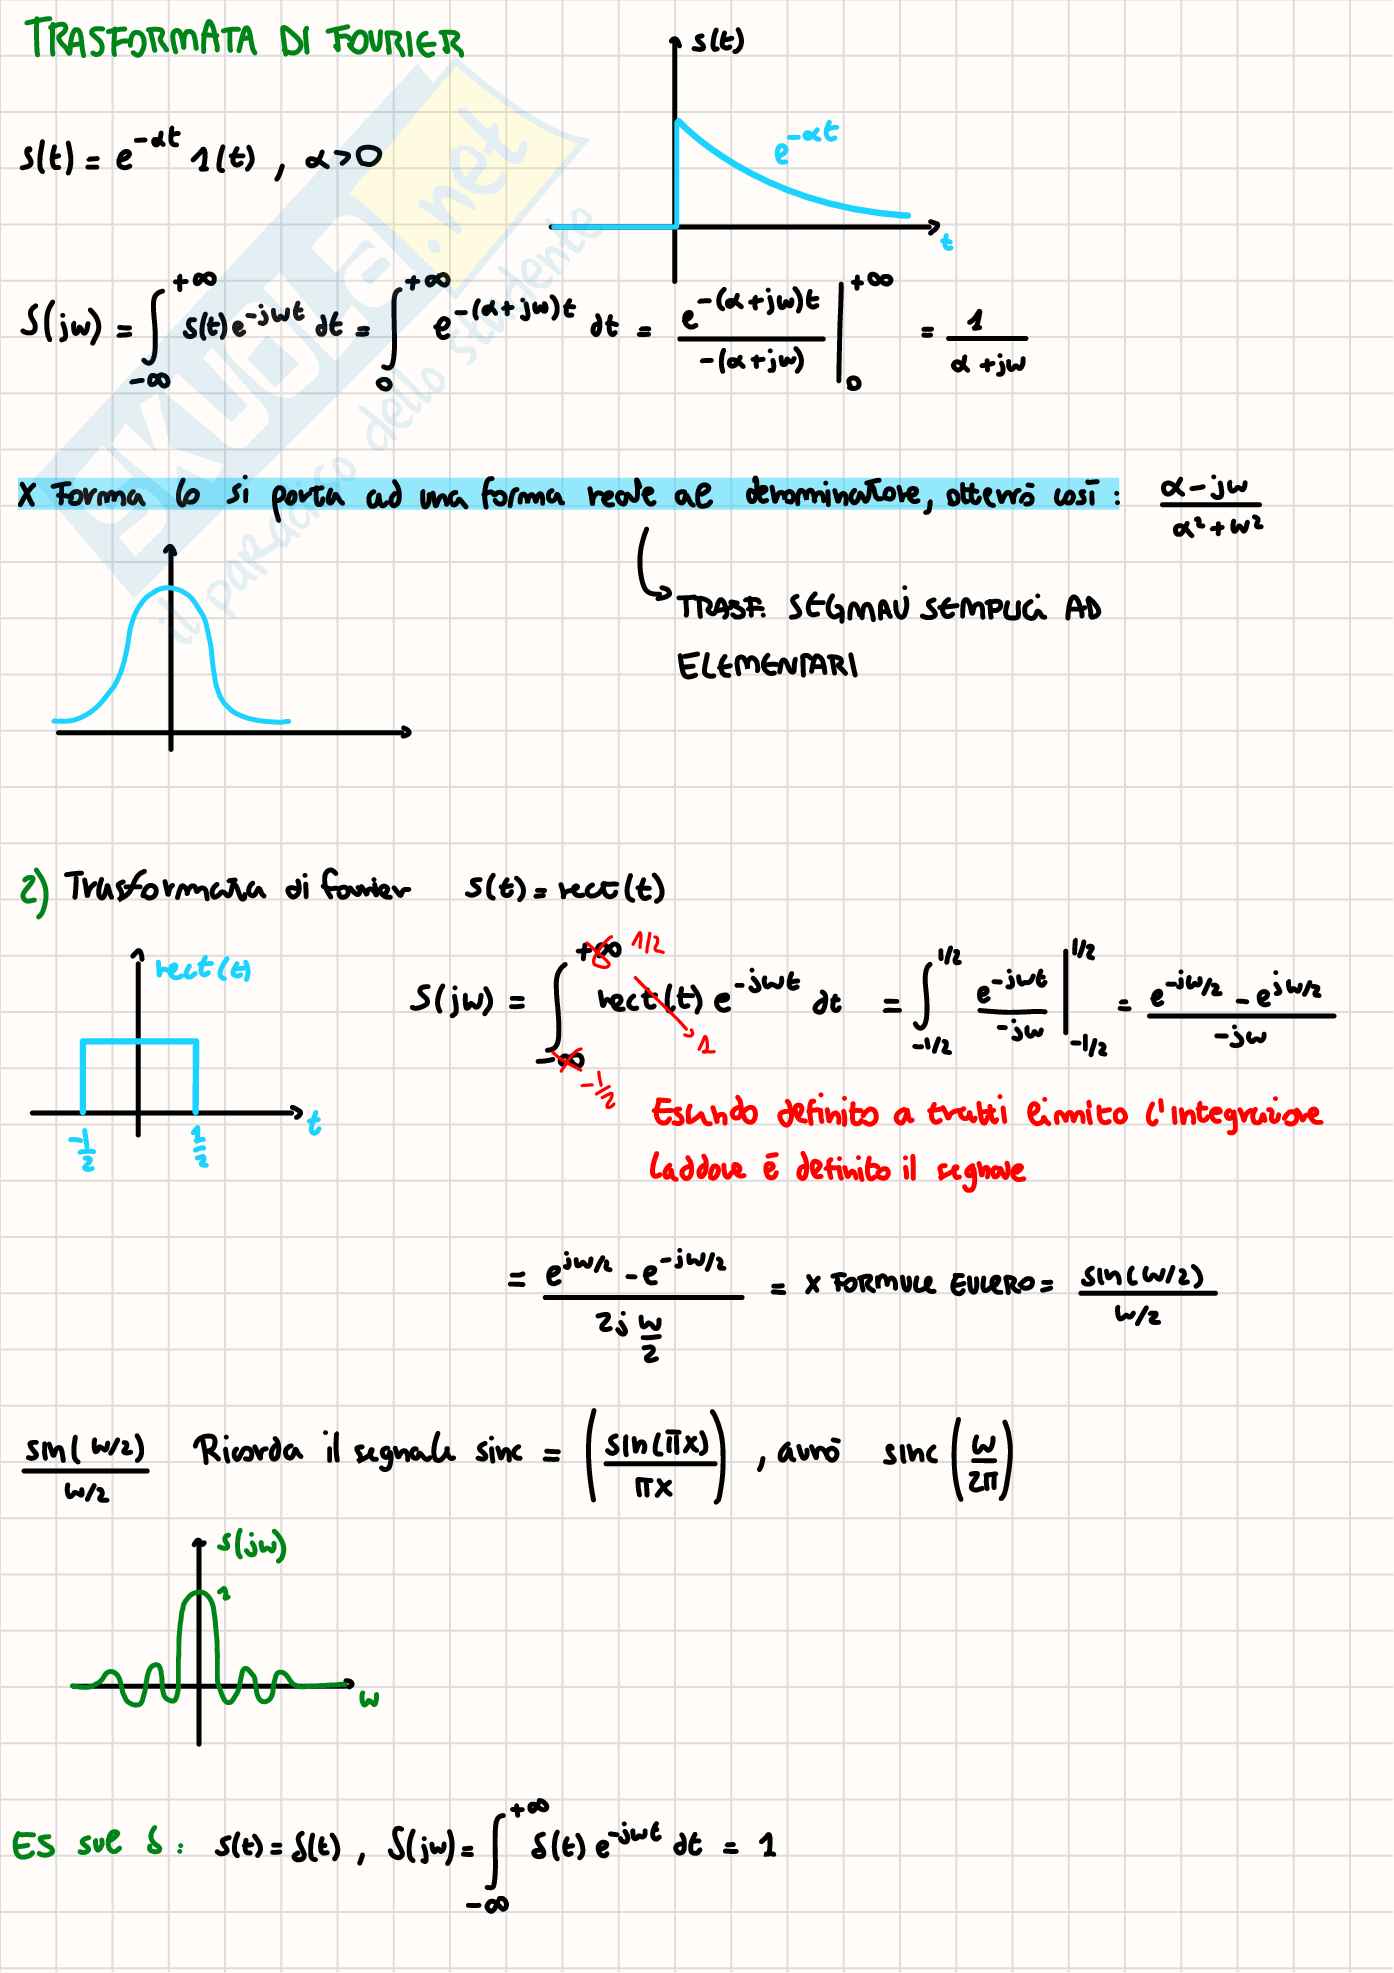 TRASFORMATA DI FOURIER
s(t)
s(t) = e^{-αt} 1(t) , α>0
e^{-αt}
t
S(jw) = ∫_{-∞}^{+∞} s(t) e^{-jwt} dt = ∫_{0}^{+∞} e^{-(α+jw)t} dt = e^{-(α+jw)t} / -(α+jw) |_{0}^{+∞} = 1 / α+jw
X Forma lo si porta ad una forma reale al denominatore, otterrò così : α-jw / α²+w²
TRASF. SEGNALI SEMPLICI AD
ELEMENTARI
2) Trasformata di fourier s(t) = rect(t)
rect(t)
t
-1/2 1/2
S(jw) = ∫_{-∞}^{+∞} rect(t) e^{-jwt} dt = ∫_{-1/2}^{1/2} e^{-jwt} / -jw |_{-1/2}^{1/2} = e^{-jw/2} - e^{jw/2} / -jw
1/2
1
-1/2
Essendo definito a tratti limito l'integrazione
laddove è definito il segnale
= e^{jw/2} - e^{-jw/2} / 2j w/2 = X FORMULE EULERO = sin(w/2) / w/2
sin(w/2) / w/2 Ricorda il segnale sinc = (sin(πx) / πx) , avrò sinc (w / 2π)
S(jw)
1
w
ES sul δ : s(t) = δ(t) , S(jw) = ∫_{-∞}^{+∞} δ(t) e^{-jwt} dt = 1
SKUOLA.net
il paradiso dello studente